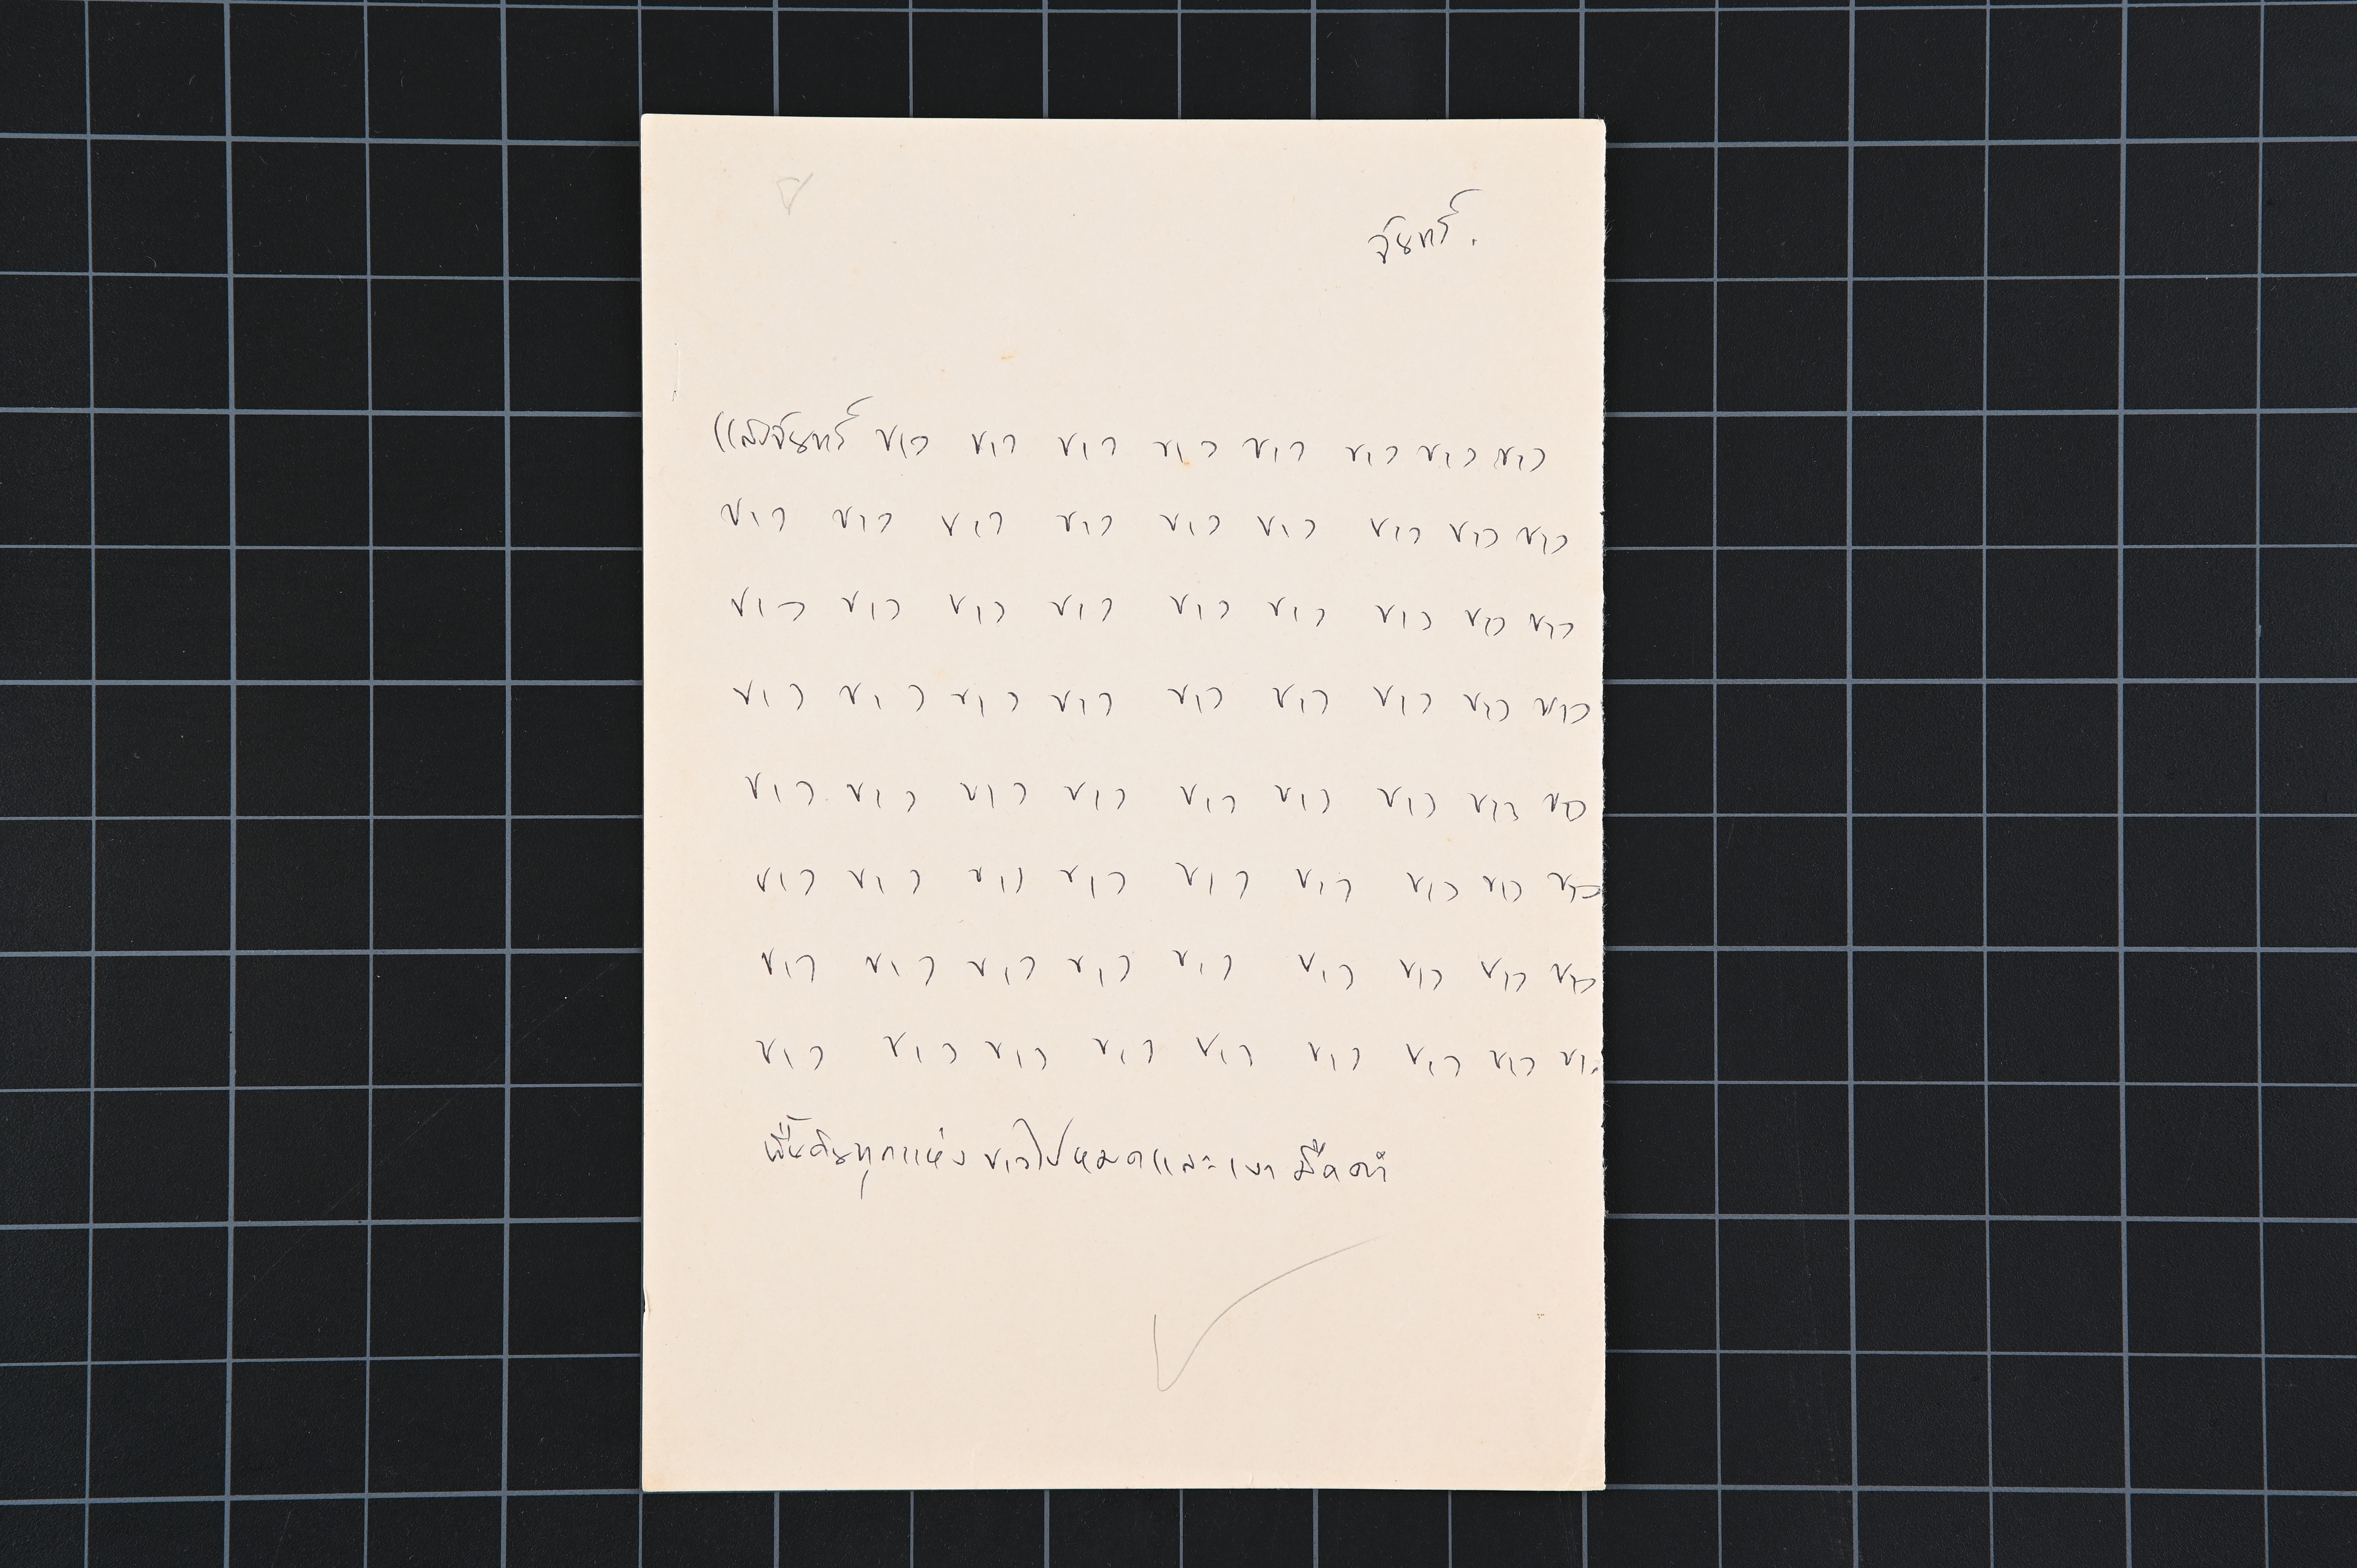 จันทร์.
แสงจันทร์ ขาว ขาว ขาว ขาว ขาว ขาว ขาว ขาว
ขาว ขาว ขาว ขาว ขาว ขาว ขาว ขาว ขาว
ขาว ขาว ขาว ขาว ขาว ขาว ขาว ขาว ขาว
ขาว ขาว ขาว ขาว ขาว ขาว ขาว ขาว ขาว
ขาว ขาว ขาว ขาว ขาว ขาว ขาว ขาว ขาว
ขาว ขาว ขาว ขาว ขาว ขาว ขาว ขาว ขาว
ขาว ขาว ขาว ขาว ขาว ขาว ขาว ขาว ขาว
ขาว ขาว ขาว ขาว ขาว ขาว ขาว ขาว ขาว
พื้นดินทุกแห่ง ขาวไปหมดและเงา มืดดำ